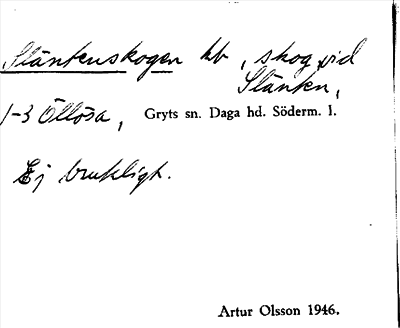 Släntenskogen hb, skog vid
Slänten,
1-3 Öllösa, Gryts sn. Daga hd. Söderm. l.
Ej brukligt.
Artur Olsson 1946.